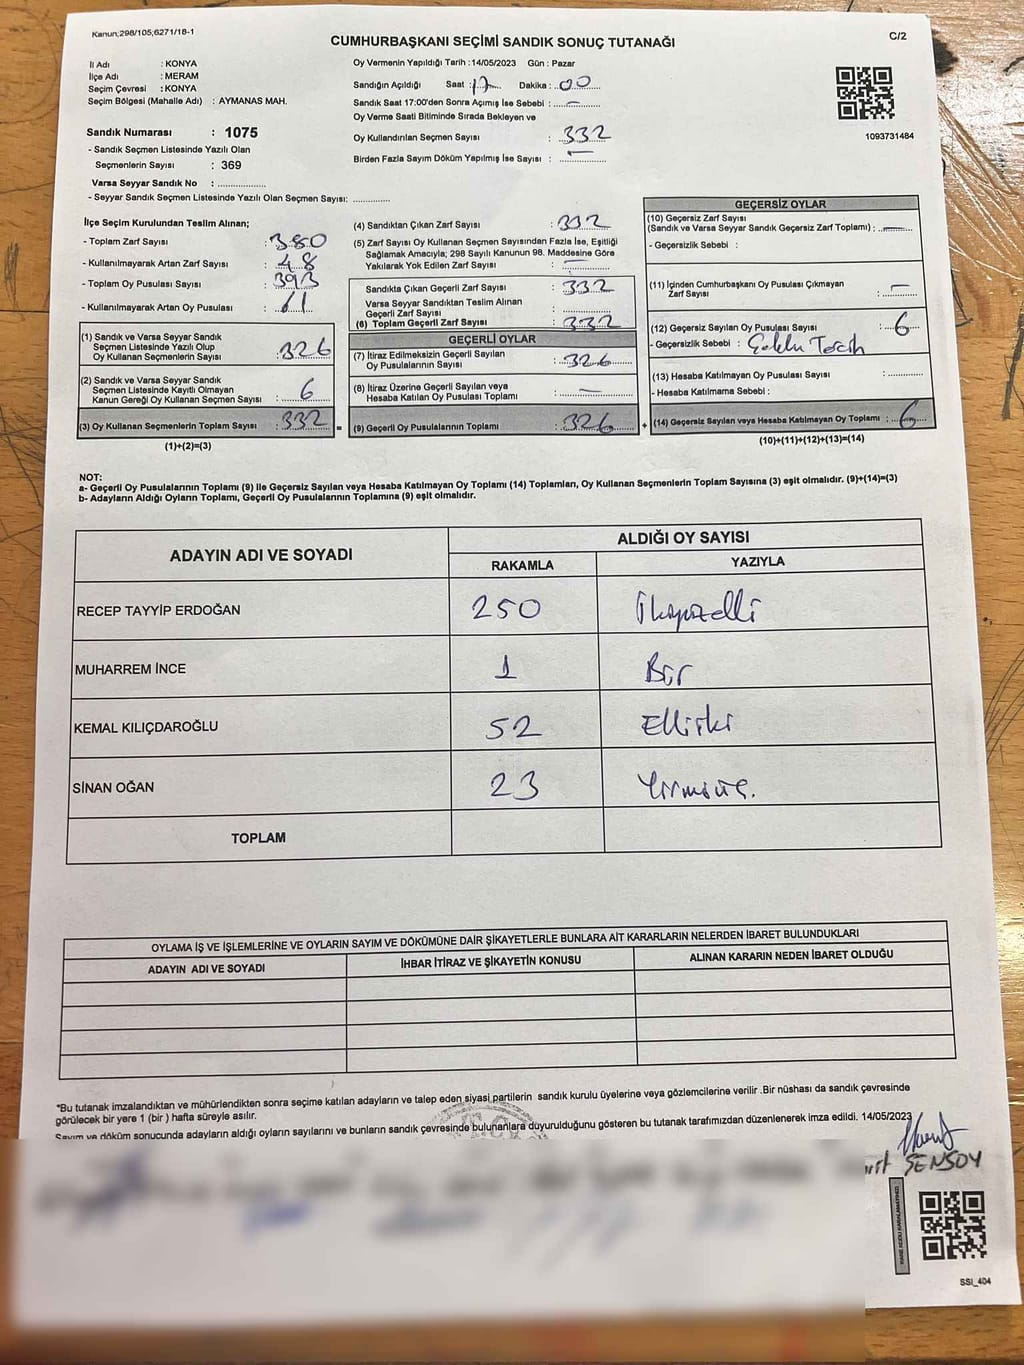 Kanun;298/105;6271/18-1
C/2
CUMHURBAŞKANI SEÇİMİ SANDIK SONUÇ TUTANAĞI
İl Adı : KONYA
İlçe Adı : MERAM
Seçim Çevresi : KONYA
Seçim Bölgesi (Mahalle Adı) : AYMANAS MAH.
Sandık Numarası : 1075
- Sandık Seçmen Listesinde Yazılı Olan
Seçmenlerin Sayısı : 369
Varsa Seyyar Sandık No : ..................
- Seyyar Sandık Seçmen Listesinde Yazılı Olan Seçmen Sayısı: ..............
Oy Vermenin Yapıldığı Tarih :14/05/2023 Gün : Pazar
Sandığın Açıldığı Saat :17 Dakika : 00
Sandık Saat 17:00'den Sonra Açımış İse Sebebi : —
Oy Verme Saati Bitiminde Sırada Bekleyen ve
Oy Kullandırılan Seçmen Sayısı : 332
Birden Fazla Sayım Döküm Yapılmış İse Sayısı : —
1093731484
İlçe Seçim Kurulundan Teslim Alınan;
- Toplam Zarf Sayısı : 380
- Kullanılmayarak Artan Zarf Sayısı : 48
- Toplam Oy Pusulası Sayısı : 393
- Kullanılmayarak Artan Oy Pusulası : 61
(1) Sandık ve Varsa Seyyar Sandık
Seçmen Listesinde Yazılı Olup
Oy Kullanan Seçmenlerin Sayısı : 326
(2) Sandık ve Varsa Seyyar Sandık
Seçmen Listesinde Kayıtlı Olmayan
Kanun Gereği Oy Kullanan Seçmen Sayısı : 6
(3) Oy Kullanan Seçmenlerin Toplam Sayısı : 332
(1)+(2)=(3)
=
(4) Sandıktan Çıkan Zarf Sayısı : 332
(5) Zarf Sayısı Oy Kullanan Seçmen Sayısından Fazla İse, Eşitliği
Sağlamak Amacıyla; 298 Sayılı Kanunun 98. Maddesine Göre
Yakılarak Yok Edilen Zarf Sayısı : —
Sandıkta Çıkan Geçerli Zarf Sayısı : 332
Varsa Seyyar Sandıktan Teslim Alınan
Geçerli Zarf Sayısı : ..............
(6) Toplam Geçerli Zarf Sayısı : 332
GEÇERLİ OYLAR
(7) İtiraz Edilmeksizin Geçerli Sayılan
Oy Pusulalarının Sayısı : 326
(8) İtiraz Üzerine Geçerli Sayılan veya
Hesaba Katılan Oy Pusulası Toplamı : —
(9) Geçerli Oy Pusulalarının Toplamı : 326
+
GEÇERSİZ OYLAR
(10) Geçersiz Zarf Sayısı
(Sandık ve Varsa Seyyar Sandık Geçersiz Zarf Toplamı) : —
- Geçersizlik Sebebi :
(11) İçinden Cumhurbaşkanı Oy Pusulası Çıkmayan
Zarf Sayısı : —
(12) Geçersiz Sayılan Oy Pusulası Sayısı : 6
- Geçersizlik Sebebi :
(13) Hesaba Katılmayan Oy Pusulası Sayısı : ............
- Hesaba Katılmama Sebebi :
(14) Geçersiz Sayılan veya Hesaba Katılmayan Oy Toplamı : 6
(10)+(11)+(12)+(13)=(14)
NOT:
a- Geçerli Oy Pusulalarının Toplamı (9) ile Geçersiz Sayılan veya Hesaba Katılmayan Oy Toplamı (14) Toplamları, Oy Kullanan Seçmenlerin Toplam Sayısına (3) eşit olmalıdır. (9)+(14)=(3)
b- Adayların Aldığı Oyların Toplamı, Geçerli Oy Pusulalarının Toplamına (9) eşit olmalıdır.
ADAYIN ADI VE SOYADI
ALDIĞI OY SAYISI
RAKAMLA YAZIYLA
RECEP TAYYİP ERDOĞAN 250 İkiyüzelli
MUHARREM İNCE 1 Bir
KEMAL KILIÇDAROĞLU 52 Elliiki
SİNAN OĞAN 23 Yirmiüç.
TOPLAM
OYLAMA İŞ VE İŞLEMLERİNE VE OYLARIN SAYIM VE DÖKÜMÜNE DAİR ŞİKAYETLERLE BUNLARA AİT KARARLARIN NELERDEN İBARET BULUNDUKLARI
ADAYIN ADI VE SOYADI İHBAR İTİRAZ VE ŞİKAYETİN KONUSU ALINAN KARARIN NEDEN İBARET OLDUĞU
*Bu tutanak imzalandıktan ve mühürlendikten sonra seçime katılan adayların ve talep eden siyasi partilerin sandık kurulu üyelerine veya gözlemcilerine verilir .Bir nüshası da sandık çevresinde
görülecek bir yere 1 (bir ) hafta süreyle asılır.
Sayım ve döküm sonucunda adayların aldığı oyların sayılarını ve bunların sandık çevresinde bulunanlara duyurulduğunu gösteren bu tutanak tarafımızdan düzenlenerek imza edildi. 14/05/2023
T.C.
ŞENSOY
SSİ_404